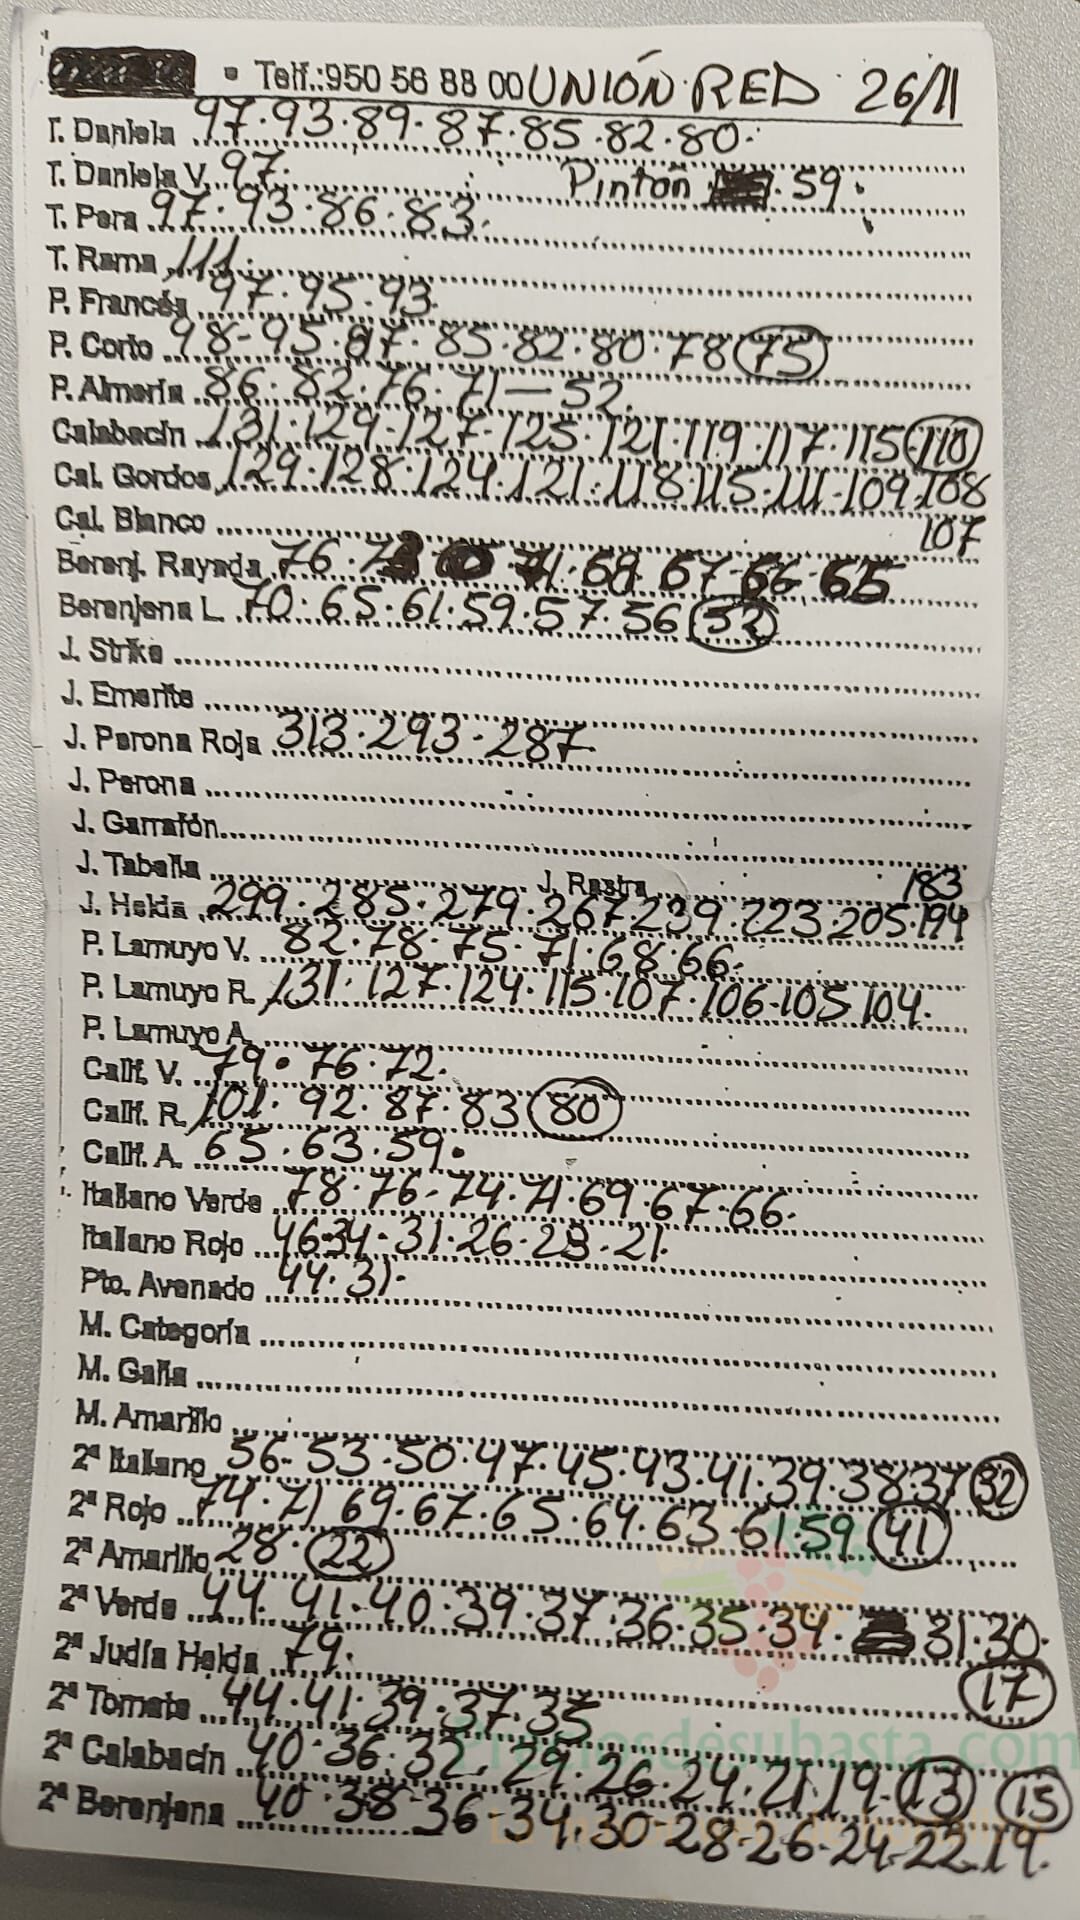 • Telf.:950 56 88 00 UNIÓN RED 26/11
T. Daniela 97·93·89·87·85·82·80·
T. Daniela V. 97· Pinton 59·
T. Pera 97·93·86·83·
T. Rama 111·
P. Francés 97·95·93
P. Corto 98-95·87·85·82·80·78 75
P. Almería 86·82·76·71—52
Calabacín 131·129-127-125·121·119·117·115 110
Cal. Gordos 129·128·124·121·118·115·111-109·108
Cal. Blanco 107
Berenj. Rayada 76·73 71·69·67-66-65
Berenjena L 70·65·61·59·57·56 52
J. Strike
J. Emerite
J. Perona Roja 313·293·287
J. Perona
J. Garrafón
J. Tabella J. Rastra 183
J. Helda 299·285·279·267·239·223·205·194
P. Lamuyo V. 82·78·75·71·68·66·
P. Lamuyo R. 131·127·124·115·107·106-105 104·
P. Lamuyo A.
Calif. V. 79·76·72·
Calif. R. 101·92·87·83 80
Calif. A. 65·63·59·
Italiano Verde 78·76-74·71·69·67·66·
Italiano Rojo 46·34·31·26·23·21·
Pto. Avenado 44·31·
M. Categoría
M. Galia
M. Amarillo
2ª Italiano 56-53·50·47·45·43·41·39·38·37 32
2ª Rojo 74·71 69·67·65·64·63·61·59 41
2ª Amarillo 28· 22
2ª Verde 44·41·40·39·37·36·35·34· 31·30·
2ª Judía Helda 79· 17
2ª Tomate 44·41·39·37·35
Preciosdesubasta.com
2ª Calabacín 40·36·32·29·26·24·21·19- 13 15
2ª Berenjena 40·38·36·34·30-28-26-24-22·19·